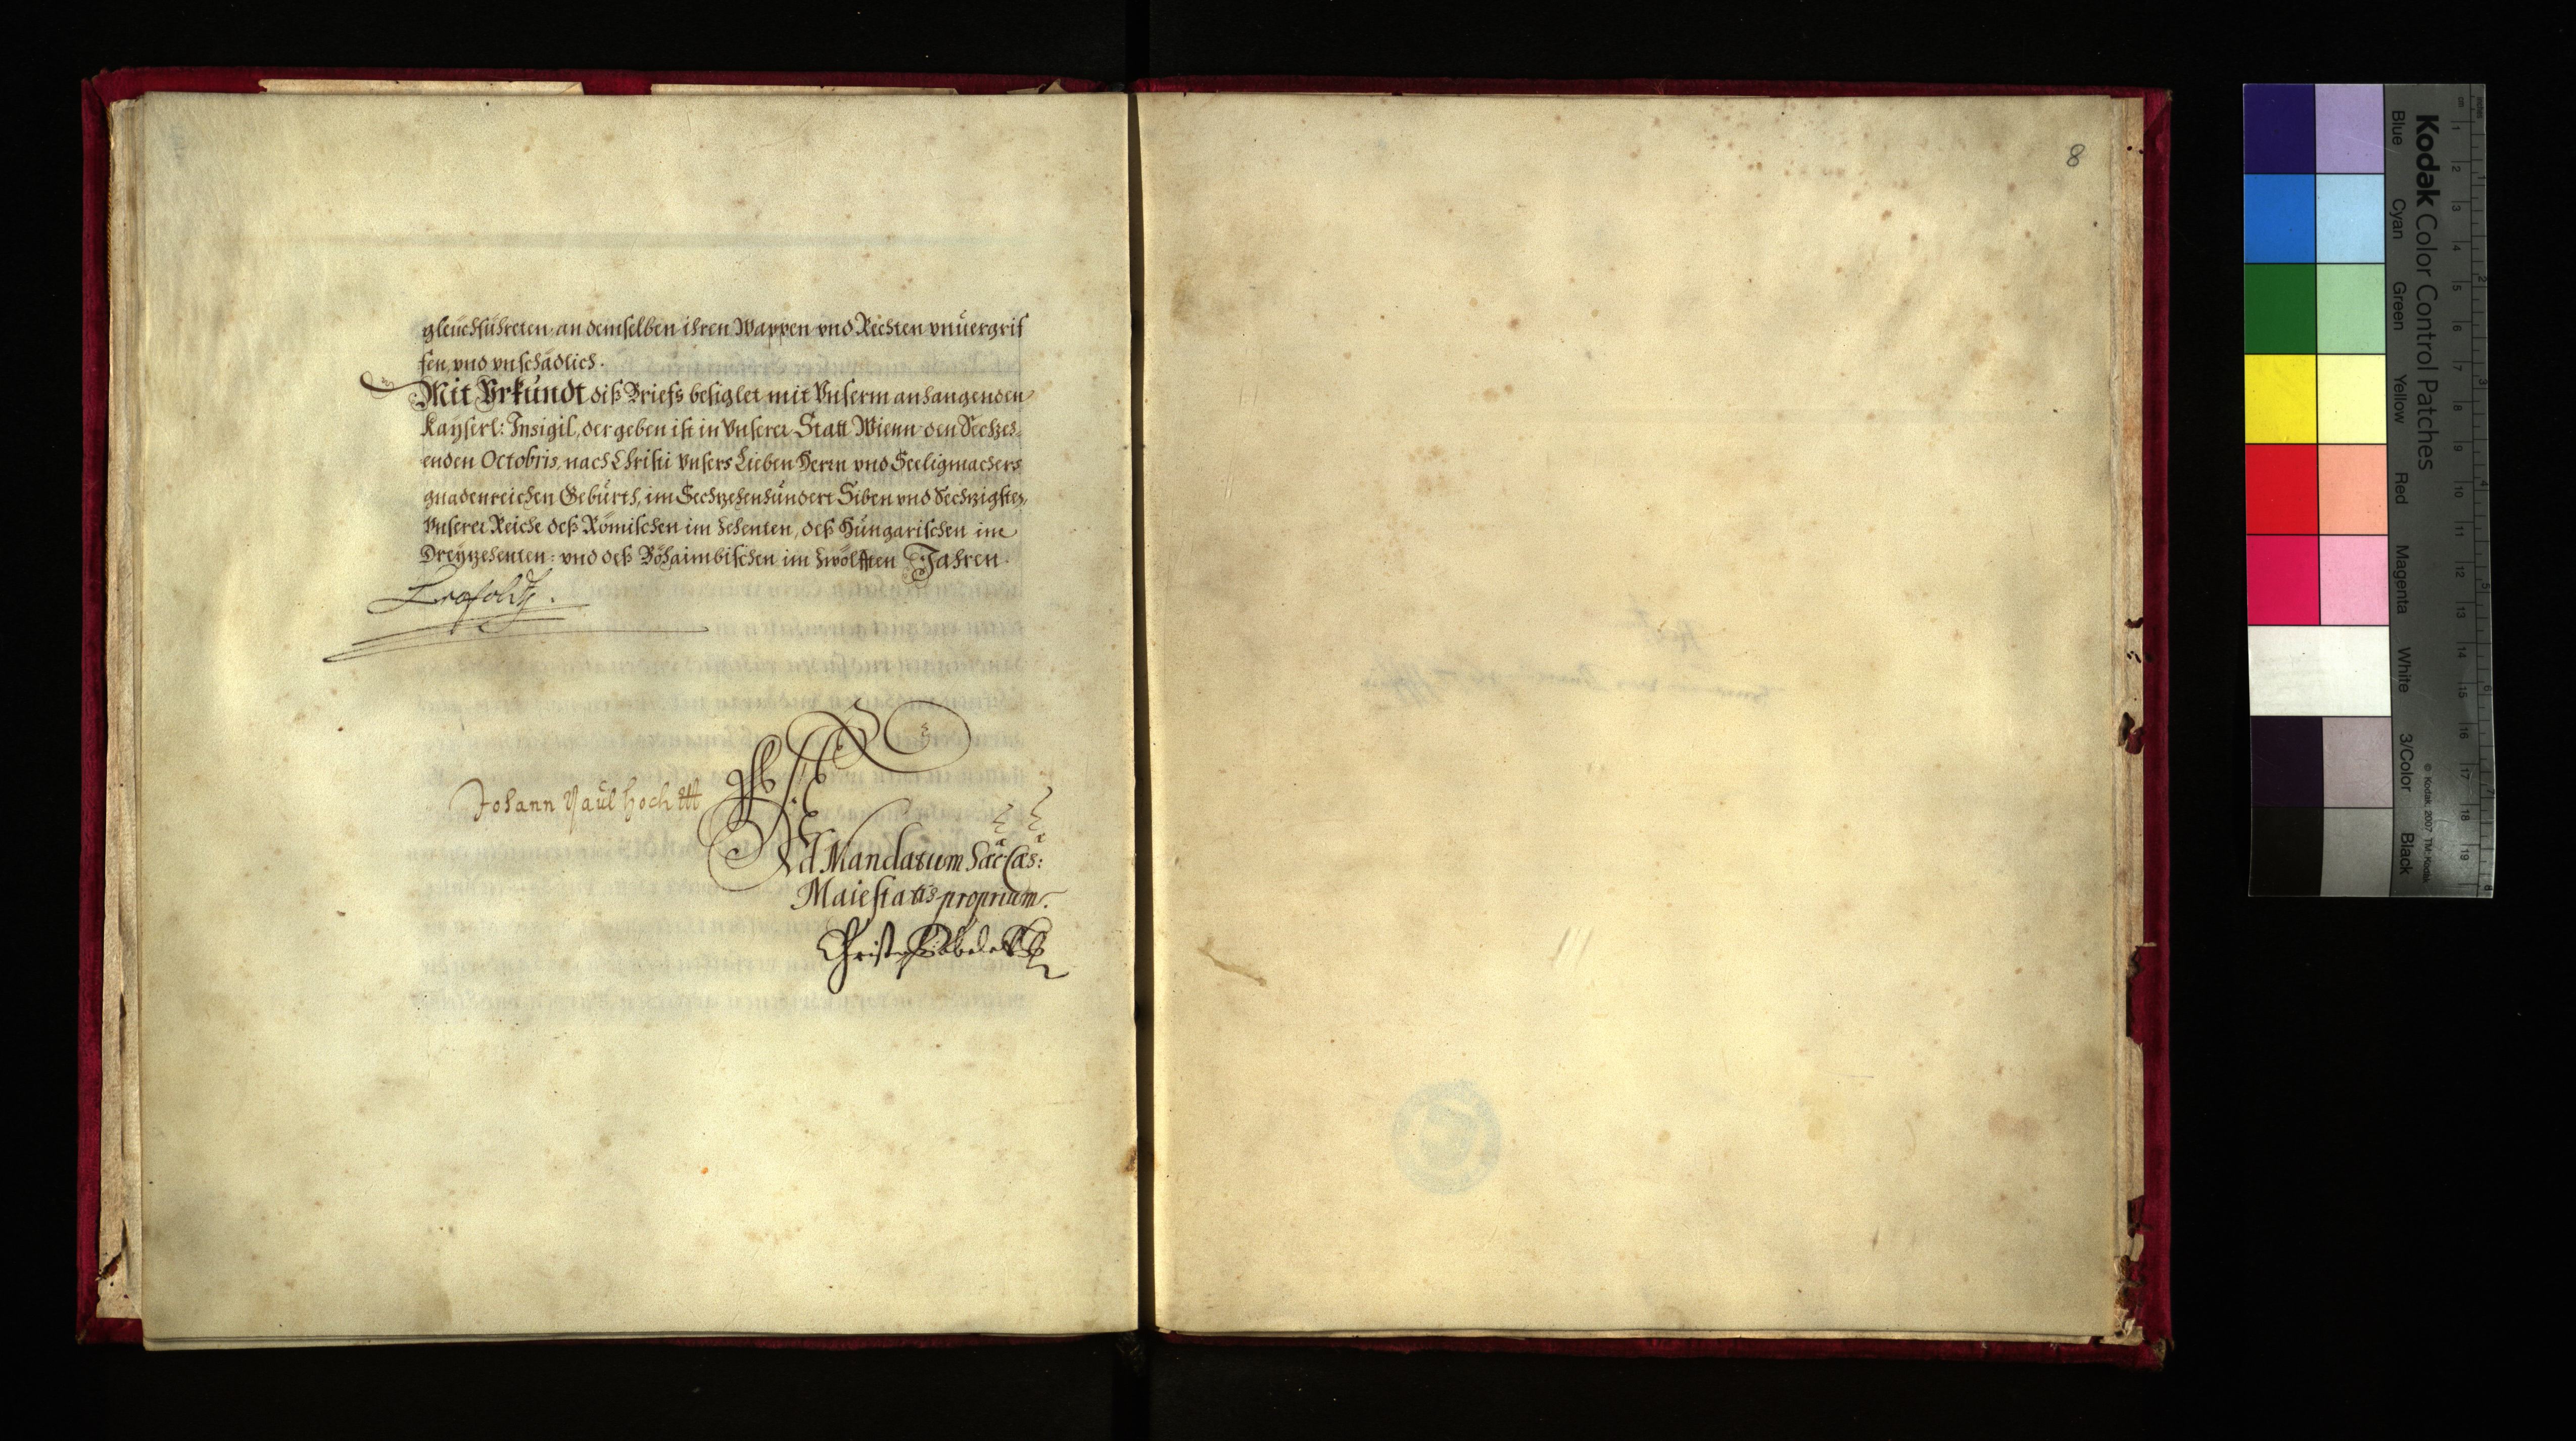 gleichführeten, an demselben ihren Wappen vnd Rechten vnuergrif
fen, vnd vnschädlich.
Mit Vrkundt diß Briefs besiglet mit Vnserm anhangenden
Kayserl: Insigil, der geben ist in Vnserer Statt Wienn den Sechze=
enden Octobris, nach Christi Vnsers Lieben Herrn vnd Seeligmachers
gnadenreichen Gebürth, im Sechzehenhündert Siben vnd Sechzigsten,
Vnserer Reiche deß Römischen im Zehenten, deß Hüngarischen im
Dreyzehenten: vnd deß Böhaimbischen im Zwölfften Jahren.
Leopoldt.
Johann Paul Hocher
Ad Mandatum Sac: Cæs:
Maiestatis proprium.
Christoph Abele
8
Kodak Color Control Patches
Blue Cyan Green Yellow Red Magenta White 3/Color Black
© Kodak, 2007 TM: Kodak
cm 1 2 3 4 5 6 7 8 9 10 11 12 13 14 15 16 17 18 19
inches 1 2 3 4 5 6 7 8